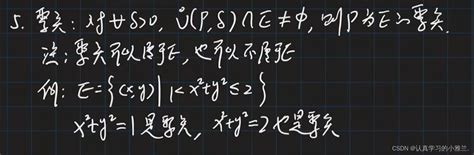 5. 聚点：对∀δ>0, Ů(P,δ)∩E≠φ, 则P为E的聚点.
注：聚点可以属于E，也可以不属于E
例：E={(x,y)|1<x²+y²≤2}
x²+y²=1是聚点，x²+y²=2也是聚点
CSDN @认真学习的小雅兰.